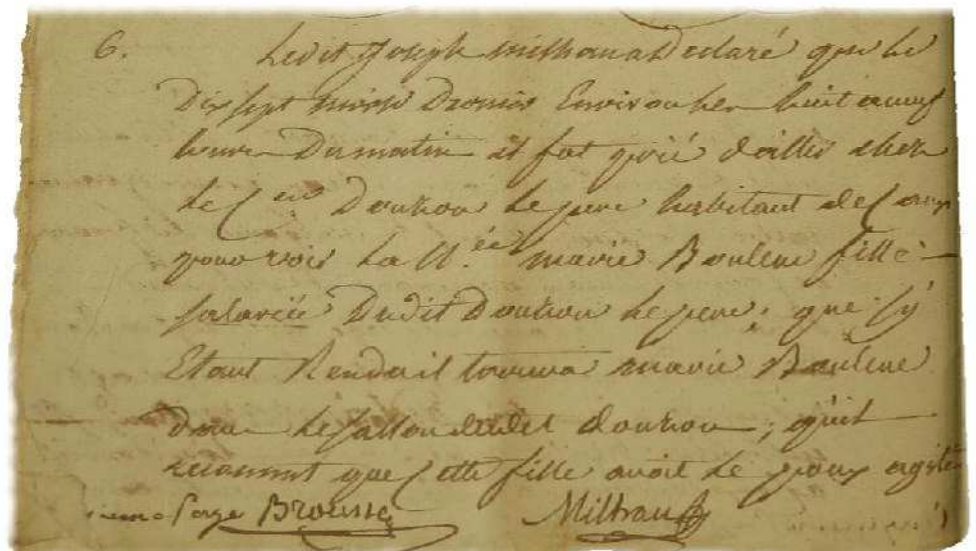 6. Ledit Joseph milhau a Declaré que le
Dix sept Dernier Environ les huit a neuf
heures Du matin il fut prié d'aller chez
le C.en Donhou le pere habitant de
pour voir la N.ée marie Boulene fille
salariée Dudit Donhou le pere; que s'y
Etant Rendu il trouva marie Boulene
Dans le sallon dudit Donhou; qu'il
reconnut que Cette fille avoit le poux agité
Brousse Milhau